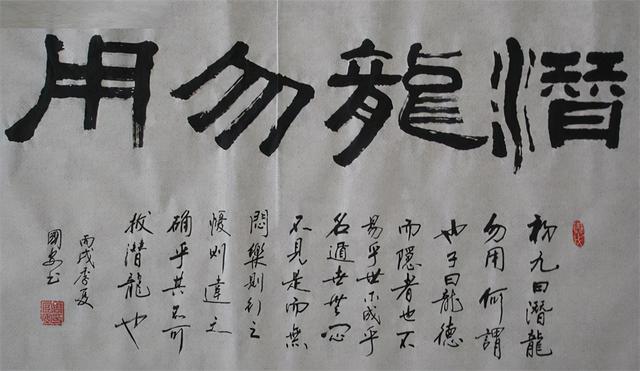 潛龍勿用
初九曰潛龍
勿用何謂
也子曰龍德
而隱者也不
易乎世不成乎
名遁世無悶
不見是而無
悶樂則行之
憂則違之
确乎其不可
拔潛龍也
丙戌季夏
國安书